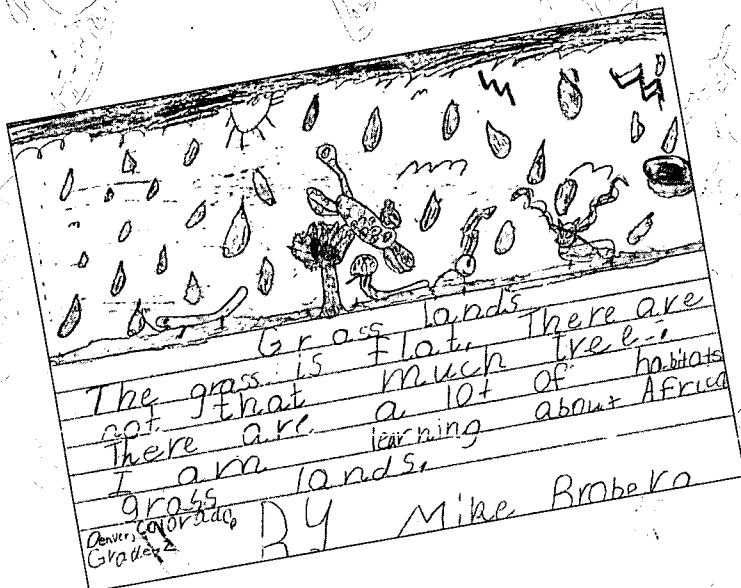 Grass lands
The grass is flat. There are
not that much tree.
There are a lot of habitats
I am learning about Africa
grass lands.
Denver, Colorado,
Grade 2
BY Mike Broberg